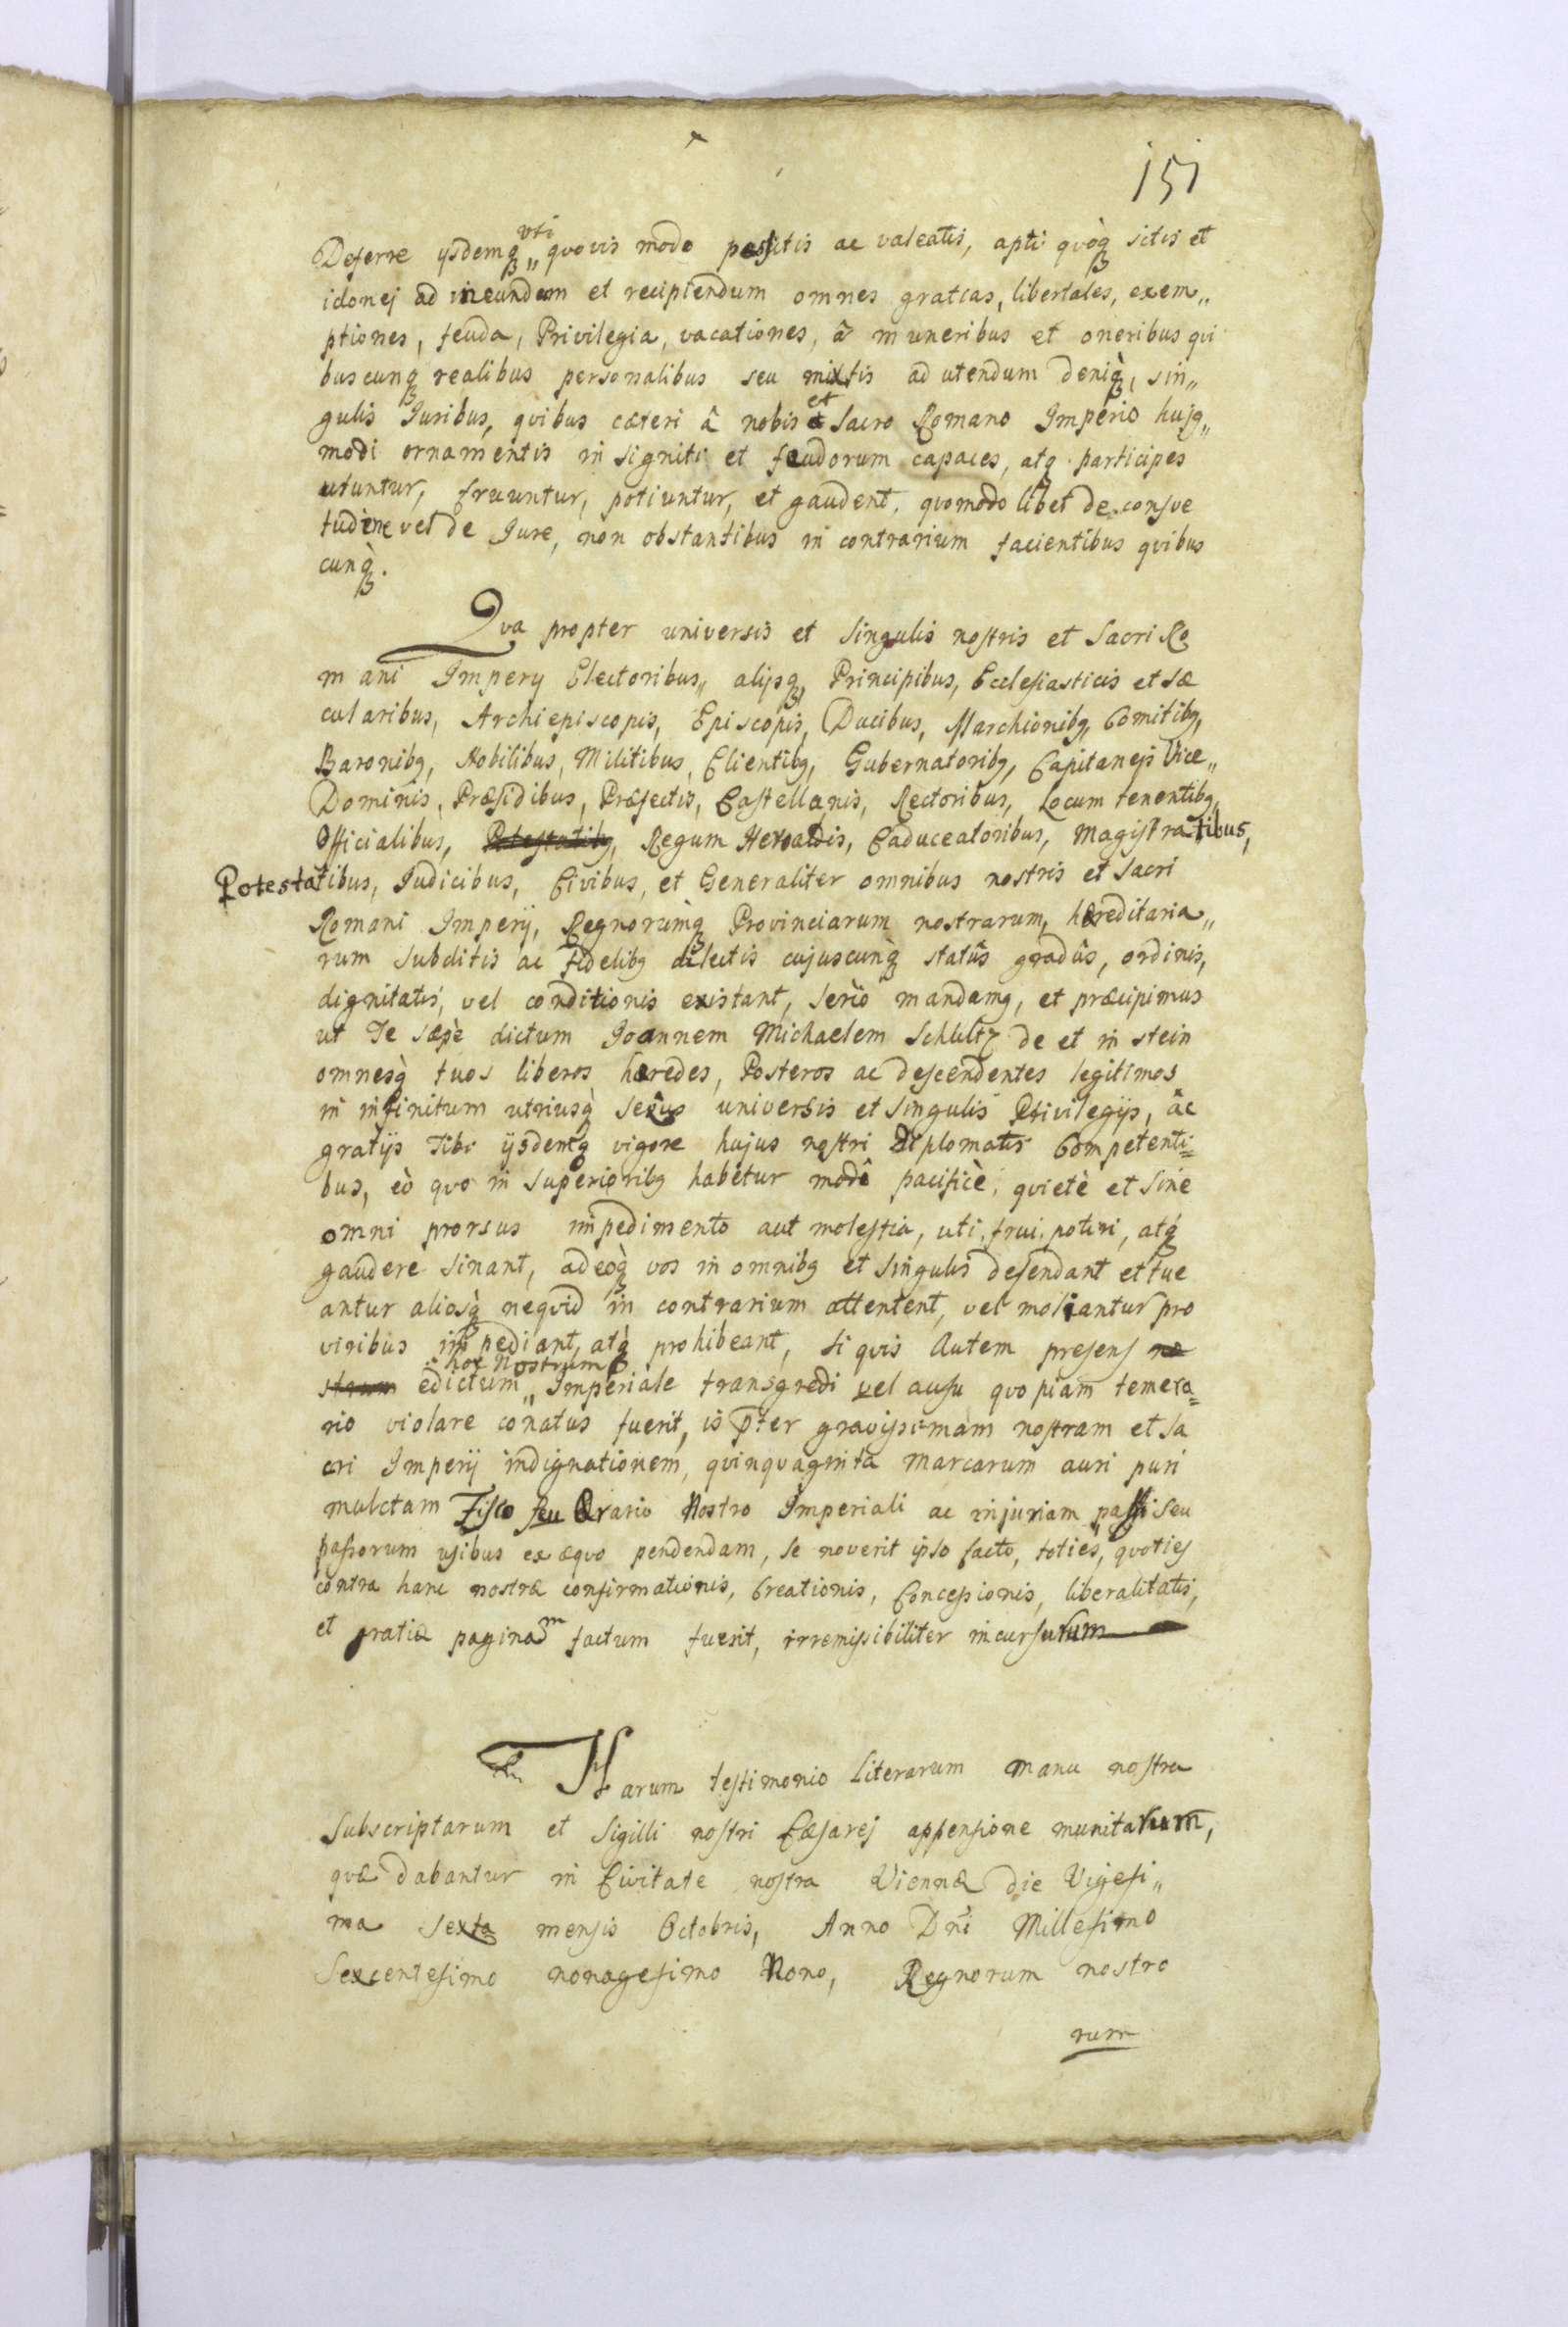 151
Deferre ysdemq₃ „ vti quovis modo possitis ac valeatis, apti quòq₃ sitis et
idonej ad ineundum et recipiendum omnes gratias, libertates, exem„
ptiones, feuda, Privilegia, vacationes, â muneribus et oneribus qui
buscunq₃ realibus personalibus seu mixtis ad utendum deniq₃, sin„
gulis Juribus, quibus cæteri â nobis et Sacro Romano Imperio hujq„
modi ornamentis insigniti et feudorum capaces, atq participes
utuntur, fruuntur, potiuntur, et gaudent, quomodo libet de consve
tudine vel de Jure, non obstantibus in contrarium facientibus quibus
cunq₃.
Qva propter universis et singulis nostris et Sacri Ro
mani Impery Electoribus„ alijsq₃ Principibus, Ecclesiasticis et sæ
cularibus, Archiepiscopis, Episcopis, Ducibus, Marchionibq, Comitibq,
Baronibq, Nobilibus, Militibus, Clientibq, Gubernatoribq, Capitanejs Vice„
Dominis, Præsidibus, Præfectis, Castellanis, Rectoribus, Locum tenentibq,
Officialibus, Potestatibq, Regum Heroaldis, Caduceatoribus, Magistratibus,
Potestatibus, Judicibus, Civibus, et Generaliter omnibus nostris et Sacri
Romani Imperij, Regnorumq₃ Provinciarum nostrarum, hæreditaria„
rum Subditis ac fidelibq dilectis cujuscunq₃ statûs gradûs, ordinis,
dignitatis, vel conditionis existant, seriò mandamq, et præcipimus
ut Te sæpè dictum Joannem Michaelem Schultz de et in stein
omnesq₃ tuos liberos hæredes, Posteros ac descendentes legitimos
in infinitum utriusq₃ sexûs universis et singulis Privilegijs, âc
gratijs Tibi ijsdemq₃ vigore hujus nostri diplomatis Competenti=
bus, eò quo in superioribq habetur modô pacificè, quietè et sine
omni prorsus impedimento aut molestia, uti, frui, potiri, atq₃
gaudere sinant, adeòq₃ vos in omnibq et singulis defendant et tue
antur aliosq₃ nequid in contrarium attentent, vel moliantur pro
viribus impediant, atq₃ prohibeant, si quis Autem presens no
strum edictum „ hoc Nostrum Imperiale transgredi vel ausu quo piam temera=
rio violare conatus fuerit, is p̄ter gravissimam nostram et Sa
cri Imperij indignationem, quinquaginta Marcarum auri puri
mulctam Fisco seu Ærario Nostro Imperiali ac injuriam passi seu
passorum usibus ex æquo pendendam, se noverit ipso facto, toties, quoties
contra hanc nostræ confirmationis, Creationis, Concessionis, liberalitatis,
et gratiæ paginam factum fuerit, irremissibiliter incursurum
Harum testimonio Literarum manu nostra
Subscriptarum et Sigilli nostri Cæsarej appensione munitarum,
quæ dabantur in Civitate nostra Viennæ die Vigesi„
ma Sexta mensis Octobris, Anno Dñi Millesimo
Sexcentesimo nonagesimo Nono, Regnorum nostro
rum